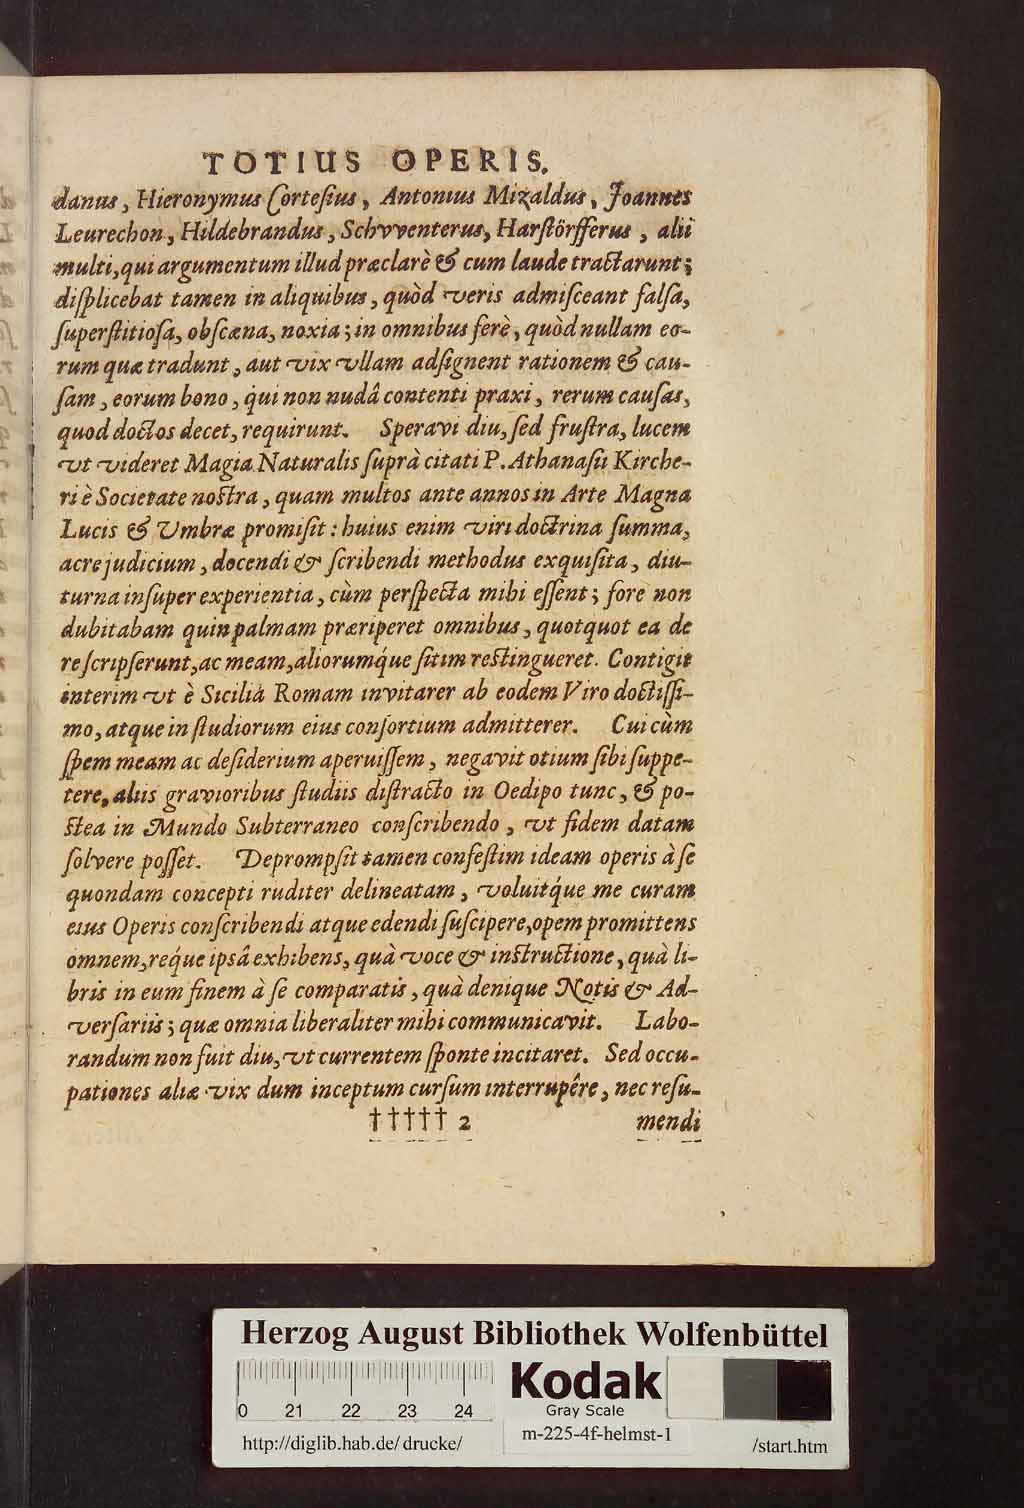 TOTIUS OPERIS.
danus, Hieronymus Cortesius, Antonius Mizaldus, Joannes
Leurechon, Hildebrandus, Schvventerus, Harstörfferus, alii
multi, qui argumentum illud præclarè & cum laude tractarunt;
displicebat tamen in aliquibus, quòd veris admisceant falsa,
superstitiosa, obscæna, noxia; in omnibus ferè, quòd nullam eo-
rum quæ tradunt, aut vix vllam adsignent rationem & cau-
sam, eorum bono, qui non nudâ contenti praxi, rerum causas,
quod doctos decet, requirunt. Speravi diu, sed frustra, lucem
vt videret Magia Naturalis suprà citati P. Athanasii Kirche-
ri è Societate nostra, quam multos ante annos in Arte Magna
Lucis & Umbræ promisit: huius enim viri doctrina summa,
acre judicium, docendi & scribendi methodus exquisita, diu-
turna insuper experientia, cùm perspecta mihi essent; fore non
dubitabam quin palmam præriperet omnibus, quotquot ea de
re scripserunt, ac meam, aliorumq́ue sitim restingueret. Contigit
interim vt è Siciliâ Romam invitarer ab eodem Viro doctissi-
mo, atque in studiorum eius consortium admitterer. Cui cùm
spem meam ac desiderium aperuissem, negavit otium sibi suppe-
tere, aliis gravioribus studiis distracto in Oedipo tunc, & po-
stea in Mundo Subterraneo conscribendo, vt fidem datam
solvere posset. Deprompsit tamen confestim ideam operis à se
quondam concepti ruditer delineatam, voluitq́ue me curam
eius Operis conscribendi atque edendi suscipere, opem promittens
omnem, req́ue ipsâ exhibens, quà voce & instructione, quà li-
bris in eum finem à se comparatis, quà denique Notis & Ad-
versariis; quæ omnia liberaliter mihi communicavit. Labo-
randum non fuit diu, vt currentem sponte incitaret. Sed occu-
pationes aliæ vix dum inceptum cursum interrupêre, nec resu-
††††† 2 mendi
Herzog August Bibliothek Wolfenbüttel
0 21 22 23 24
Kodak
Gray Scale
http://diglib.hab.de/drucke/
m-225-4f-helmst-1
/start.htm